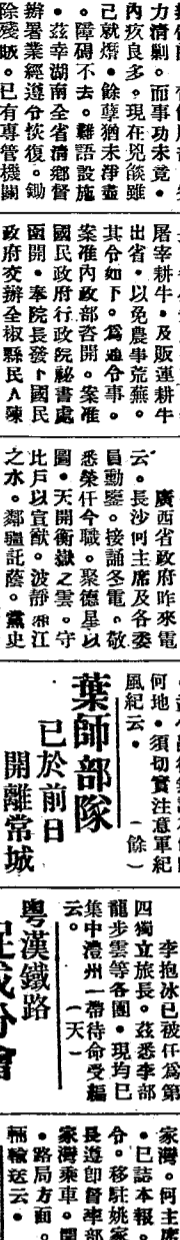 力清剿。而事功未竟。
內疚良多。現在兇燄雖
已就熸。餘孽猶未淨盡
。障碍不去。難語設施
。茲幸湖南全省清鄉督
辦署業經遵令恢復。鋤
除發販。已有專管機關
屠宰耕牛。及販運耕牛
出省。以免農事荒蕪。
其令如下。爲通令事。
案准內政部咨開。案准
國民政府行政院秘書處
函開。奉院長發下國民
政府交辦全椒縣民人陳
廣西省政府昨來電
云。長沙何主席及各委
員勳鑒。接誦冬電。敬
悉榮任今職。聚德星以
闢。天開衡嶽之雲。守
比戶以宣猷。波靜湘江
之水。鄰疆託蔭。黨史
何地。須切實注意軍紀
風紀云。（餘）
葉師部隊
已於前日
開離常城
李抱冰已被任爲第
四獨立旅長。茲悉李部
龍步雲等各團。現均已
集中澧州一帶待命受編
云。（天）
粵漢鐵路
家灣。何主席
。已誌本報。
令。移駐姚家
長遵卽督率部
家灣乘車。開
。路局方面。
輛輸送云。